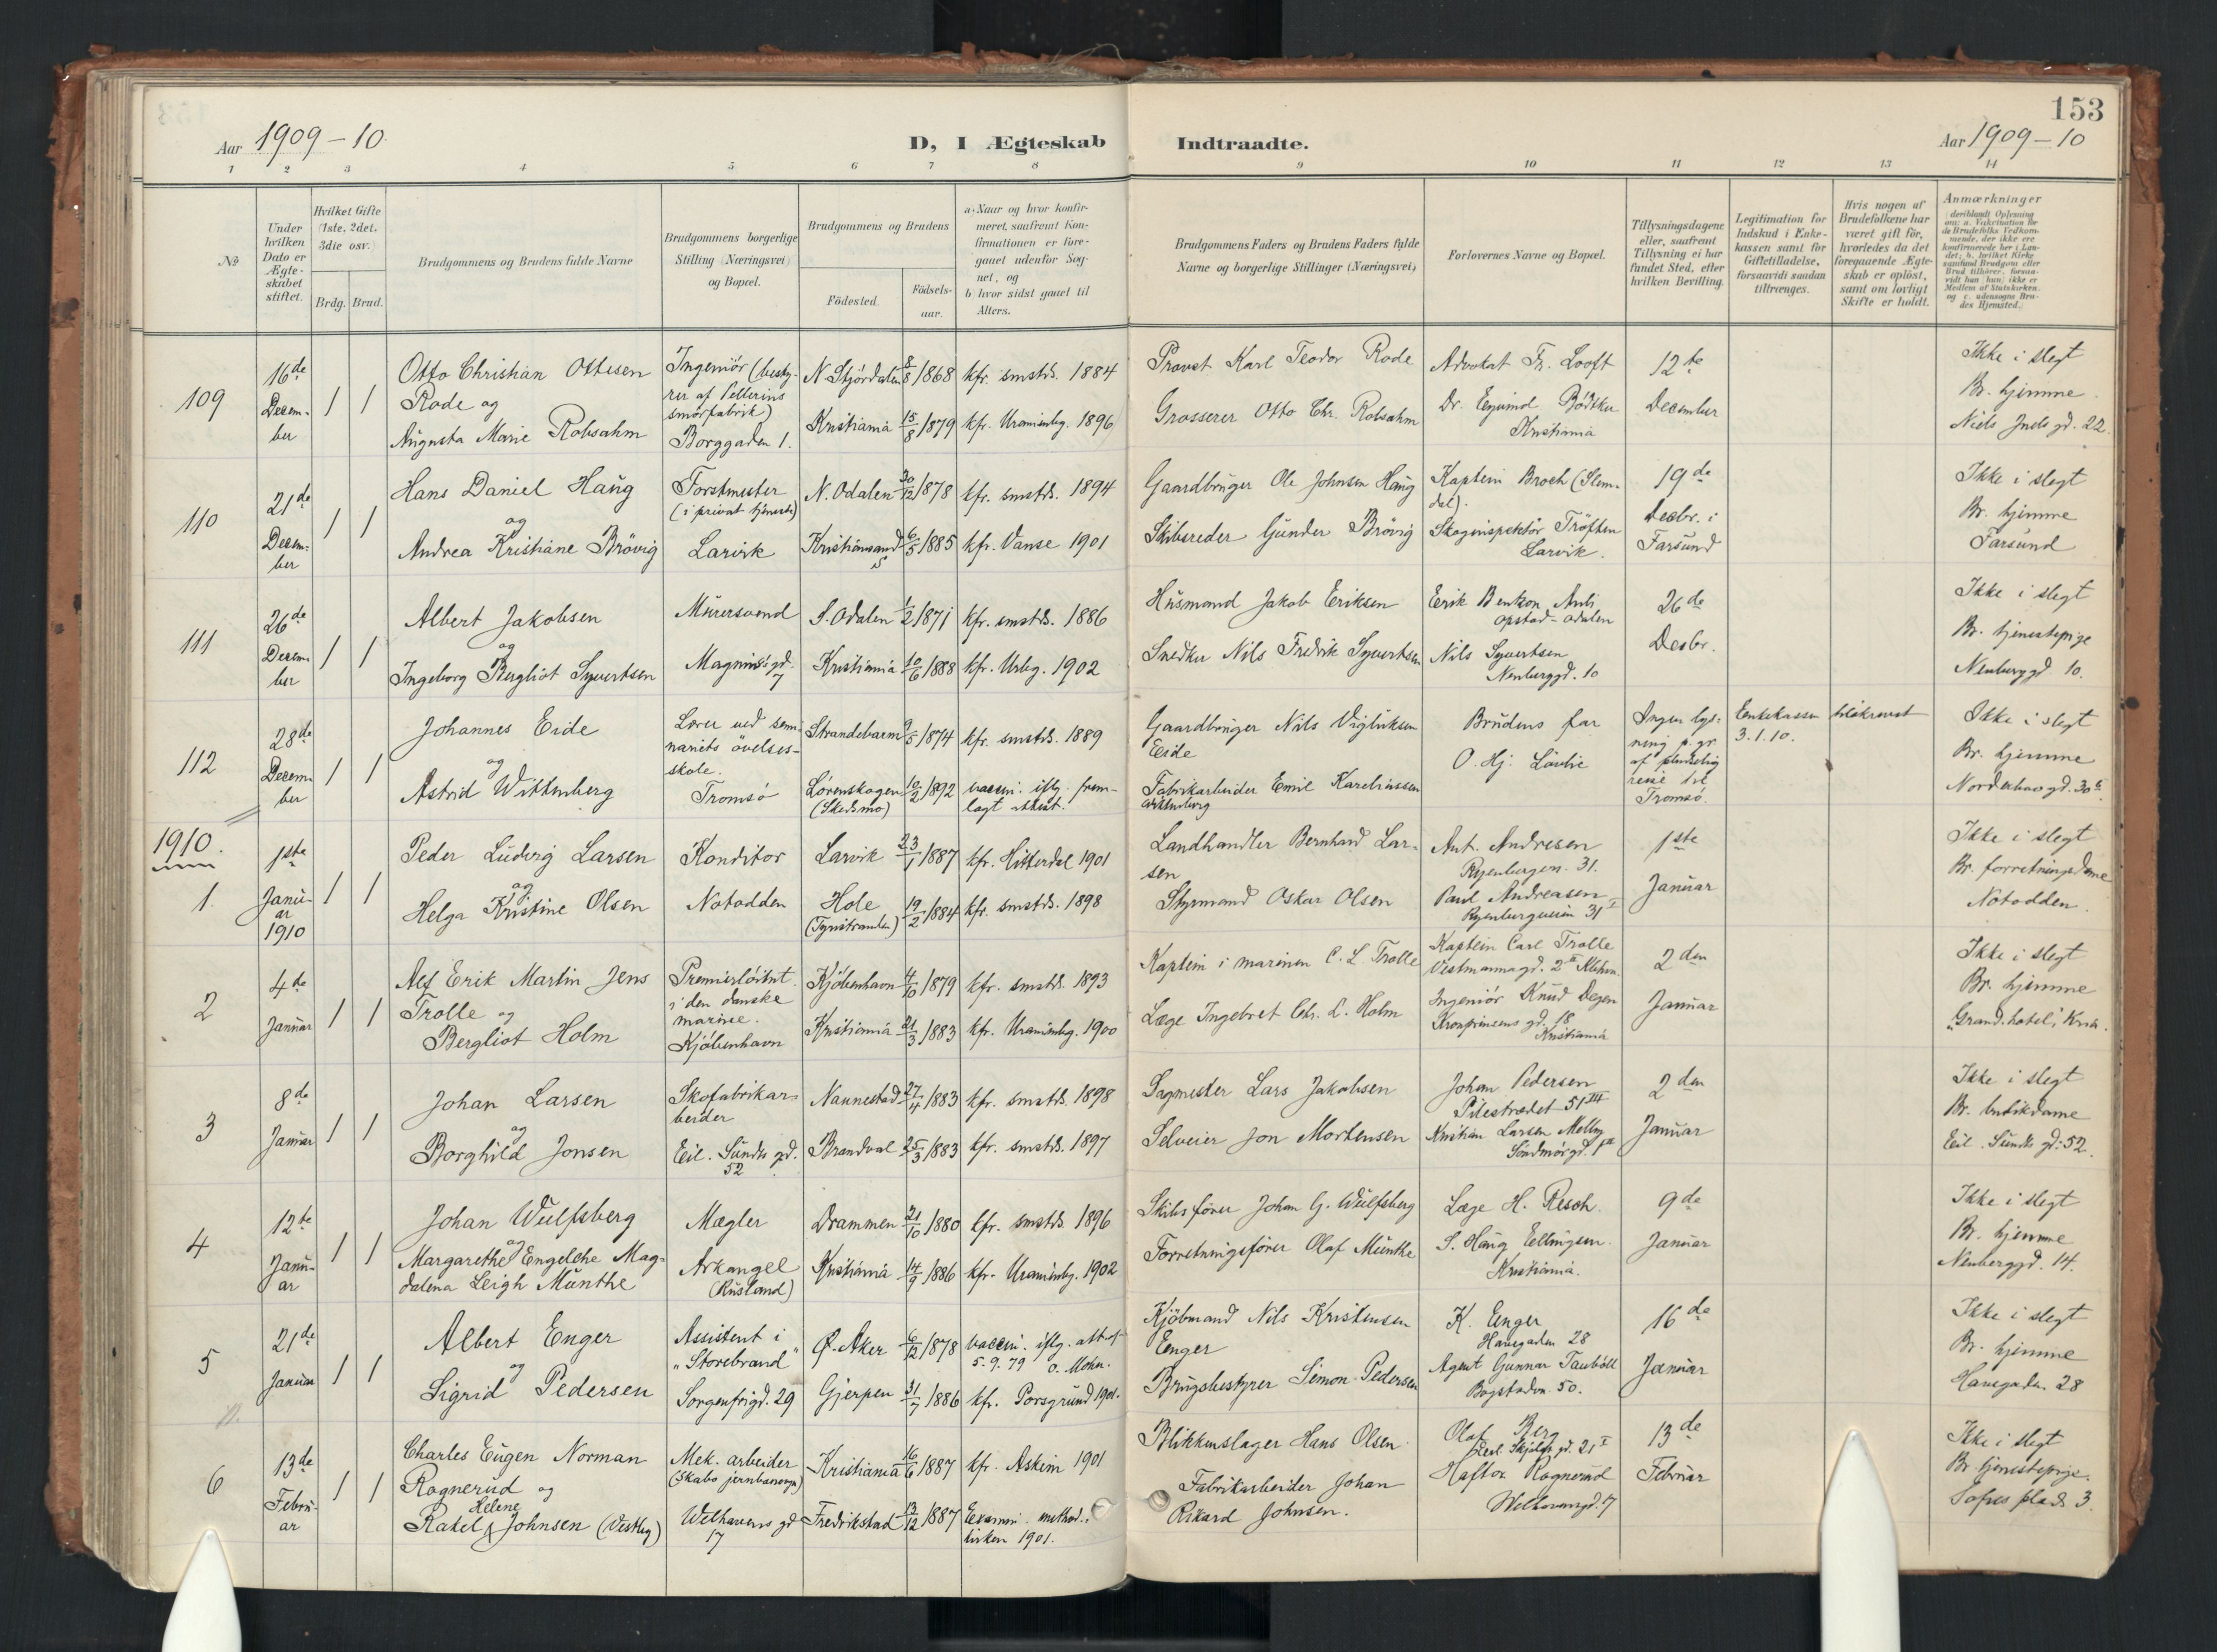 153
Aar 1909-10.
D, I Ægteskab Indtraadte.
Aar 1909-10
1 2 3 4 5 6 7 8 9 10 11 12 13 14
No
Under hvilken Dato er Ægteskabet stiftet.
Hvilket Gifte (1ste, 2det, 3die osv.)
Brdg. Brud.
Brudgommens og Brudens fulde Navne
Brudgommens borgerlige Stilling (Næringsvei) og Bopæl.
Brudgommens og Brudens
Födested.
Födsels-aar.
a. Naar og hvor konfir-
meret, saafremt Kon-
firmationen er fore-
gaaet udenfor Sog-
net, og
b. hvor sidst gaaet til
Alters.
Brudgommens Faders og Brudens Faders fulde
Navne og borgerlige Stillinger (Næringsvei)
Forlovernes Navne og Bopæl.
Tillysningsdagene
eller, saafremt
Tillysning ei har
fundet Sted, efter
hvilken Bevilling.
Legitimation for
Indskud i Enke-
kassen samt for
Giftetilladelse,
forsaavidt saadan
tiltrænges.
Hvis nogen af
Brudefolkene har
været gift för,
hvorledes da det
foregaaende Ægte-
skab er oplöst,
samt om lovligt
Skifte er holdt.
Anmærkninger
(deriblandt Oplysning
om: a. Vakcination for
de Brudefolks Vedkom-
mende, der ikke ere
konfirmerede her i Lan-
det; b. hvilket Kirke-
samfund Brudgom eller
Brud tilhører, forsaa-
vidt han (hun) ikke er
Medlem af Statskirken,
og c. udensogns Bru-
des Hjemsted.)
109
16de
Decem-
ber
1 1
Otto Christian Ottesen
Rode og
Augusta Marie Robsahm
Ingeniør (besty-
rer af Pellerins
smörfabrik)
Borggaden 1.
N. Stjørdalen 8/8 1868 kfr. smstds. 1884
Kristiania 15/8 1879 kfr. Uranienbg. 1896
Provst Karl Teodor Rode
Grosserer Otto Chr. Robsahm
Advokat Fr. Looft
Dr. Eyvind Bödtker
Kristiania
12te
December
Ikke i slegt
Br. hjemme
Niels Juels gd. 22.
110
21de
Decem-
ber
1 1
Hans Daniel Haug
og
Andrea Kristiane Brövig
Forstmester
(i privat tjeneste)
Larvik
N. Odalen 30/12 1878 kfr. smstds. 1894
Kristiansand S 6/5 1885 kfr. Vanse 1901
Gaardbruger Ole Johnsen Haug
Skibsreder Gunder Brövig
Kaptein Broch (Slem-
dal).
Skoginspektör Tröften
Larvik.
19de
Decbr. i
Farsund
Ikke i slegt
Br. hjemme
Farsund
111
26de
Decem-
ber
1 1
Albert Jakobsen
og
Ingeborg Bergliot Syvertsen
Murersvend
Magnus's gd.
7
S. Odalen 1/2 1871 kfr. smstds. 1886
Kristiania 10/6 1888 kfr. Urbg. 1902
Husmand Jakob Eriksen
Snedker Nils Fredrik Syvertsen
Erik Bentzon
Opstad-Odalen
Nils Syvertsen
Neuberggd. 10
26de
Decbr.
Ikke i slegt
Br. tjenestepige
Neuberggd 10.
112
28de
Decem-
ber
1 1
Johannes Eide
og
Astrid Wittenberg
Lærer ved semi-
nariets övelses-
skole.
Tromsö
Strandebarm 9/5 1874 kfr. smstds. 1889
Lørenskogen
(Skedsmo) 10/2 1892 vaccin. iflg. frem-
lagt attest.
Gaardbruger Nils Vigleiksen
Eide
Fabrikarbeider Emil Kareliussen
Wittenberg
Brudens far
O. Hj. Lövlie
Ingen lys-
ning p. gr.
af pludselig
reise til
Tromsö.
Enkekassen
3.1.10.
Ikke i slegt
Br. hjemme
Norderhovgd. 30
1910.
1.
1ste
Janu-
ar
1910
1 1
Peder Ludvig Larsen
og
Helga Kristine Olsen
Konditor
Notodden
Larvik 23/1 1887 kfr. Hitterdal 1901
Hole
(Tyristranden) 19/2 1884 kfr. smstds. 1898
Landhandler Bernhard Lar-
sen
Styrmand Oskar Olsen
Ant. Andresen
Ryenbergvn. 31.
Paul Andreasen
Ryenbergveien 31
1ste
Januar
Ikke i slegt
Br. forretningsdame
Notodden.
2
4de
Januar
1 1
Alf Erik Martin Jens
Trolle og
Bergliot Holm
Premierløitnt.
i den danske
marine.
Kjöbenhavn
Kjöbenhavn 4/10 1879 kfr. smstds. 1893
Kristiania 21/3 1883 kfr. Uranienbg. 1900
Kaptein i marinen C. L. Trolle
Læge Ingebret Chr. L. Holm
Kaptein Carl Trolle
Vestmannagd. 2 Kbhvn.
Ingeniör Knud Degen
Kronprinsens gd. 18
Kristiania
2den
Januar
Ikke i slegt
Br. hjemme
"Grand hotel", Kria.
3
8de
Januar
1 1
Johan Larsen
og
Borghild Jonsen
Skofabrikar-
beider
Eil. Sundts gd.
52
Nannestad 27/4 1883 kfr. smstds. 1898
Brandval 25/3 1883 kfr. smstds. 1897
Sagmester Lars Jakobsen
Selveier Jon Mortensen
Johan Pedersen
Pilestrædet 51 III
Kristian Larsen Melby
Söndmörgd. 1a
2den
Januar
Ikke i slegt
Br. butikdame
Eil. Sundts gd: 52.
4
12te
Janu-
ar
1 1
Johan Wulfsberg
og
Margarethe Engelche Mag-
dalena Leigh Munthe
Mægler
Arkangel
(Rusland)
Drammen 21/10 1880 kfr. smstds 1896
Kristiania 14/9 1886 kfr. Uranienbg. 1902
Skibsförer Johan G. Wulfsberg
Forretningsförer Olaf Munthe
Læge H. Resch
S. Haug Ellingsen.
Kristiania.
9de
Januar
Ikke i slegt
Br. hjemme
Neuberggd. 14.
5
21de
Januar
1 1
Albert Enger
og
Sigrid Pedersen
Assistent i
"Storebrand"
Sorgenfrigd. 29
Ø. Aker 6/12 1878 vaccin. iflg. att. af
5.9.79 O. Mohn.
Gjerpen 31/7 1886 kfr. Porsgrund 1901.
Kjöbmand Nils Kristensen
Enger
Brugsbestyrer Simon Pedersen
K. Enger
Havegaden 28
Agent Gunnar Tauböll
Bogstadvn. 50.
16de
Januar
Ikke i slegt
Br. hjemme
Havegaden 28
6
13de
Febru-
ar
1 1
Charles Eugen Norman
Rognerud og
Helene
Rakel Johnsen (Vestby)
Mek. arbeider
(Skabo jernbanevgn)
Welhavens gd
17
Kristiania 16/6 1887 kfr. Askim 1901
Fredrikstad 13/12 1887 Examin. method.
kirken 1901.
Blikkenslager Hans Olsen
Fabrikarbeider Johan
Rikard Johnsen.
Olaf Berg
Skjolds gd. 21 I
Haftor Rognerud
Welhavensgd. 17
13de
Februar
Ikke i slegt
Br. tjenestepige.
Sofies plads 3.